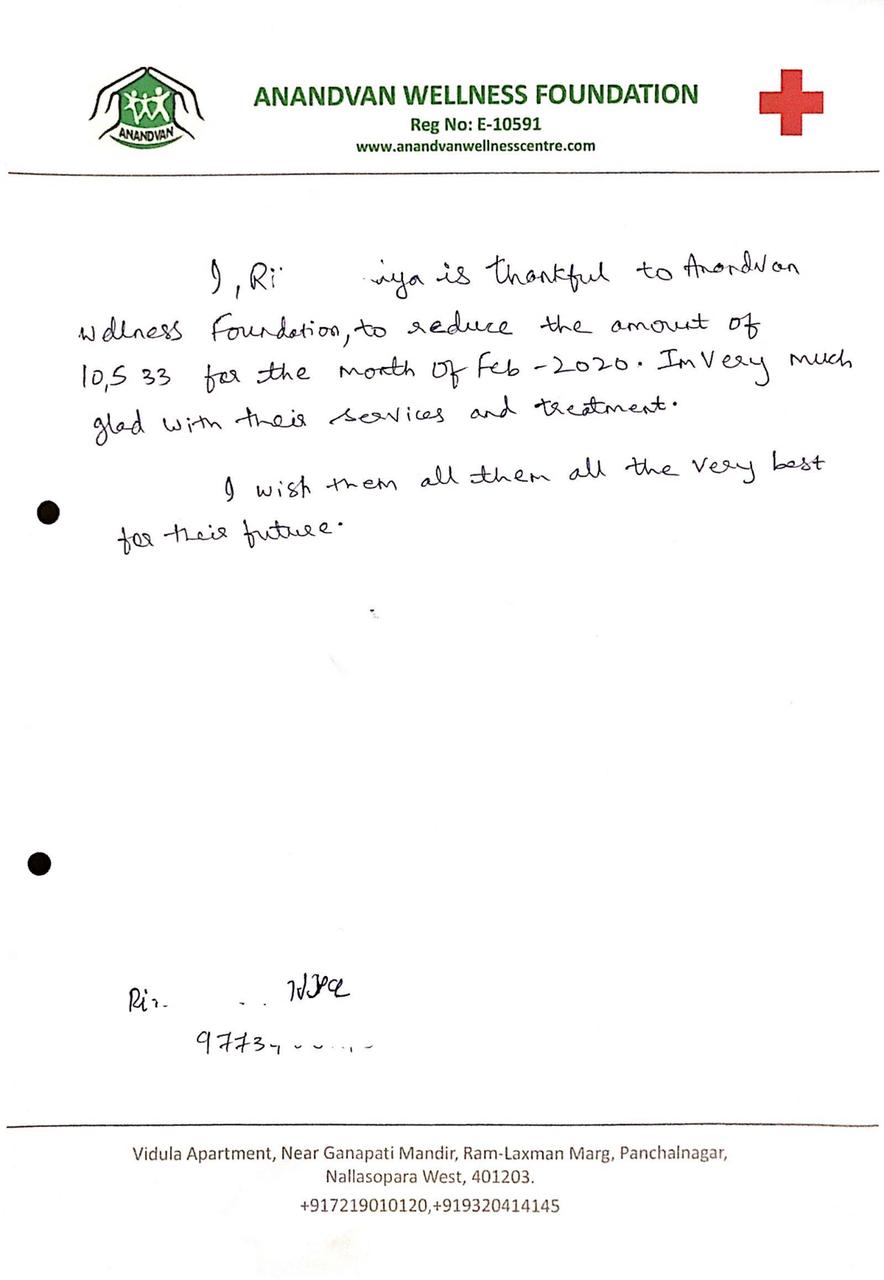 ANANDVAN
ANANDVAN WELLNESS FOUNDATION
Reg No: E-10591
www.anandvanwellnesscentre.com
I, Ri iya is thankful to Anandvan
Wellness Foundation, to reduce the amount of
10,533 for the month of Feb -2020. Im Very much
glad with their services and treatment.
I wish them all them all the very best
for their future.
9773
Vidula Apartment, Near Ganapati Mandir, Ram-Laxman Marg, Panchalnagar,
Nallasopara West, 401203.
+917219010120,+919320414145